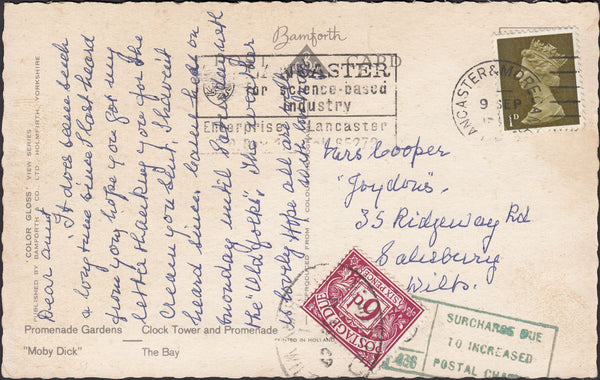 Bamforth
POST CARD
LANCASTER
for science-based
industry
Enterprise Lancaster
LANCASTER & MORECAMBE
9 SEP
1D
Dear Aunt
It does seem such
a long time since I last heard
from you, hope you got my
letter thanking you for the
Cream you sent. I haven't
heard since. Came here on
Monday until
the "Old Jocks". The weather
is lovely. Hope all are well
Mrs Cooper
"Joydons".
35 Ridgeway Rd
Salisbury
Wilts.
POSTAGE DUE
6D.
SIXPENCE
SURCHARGE DUE
TO INCREASED
POSTAL
436
"COLOR GLOSS" VIEW SERIES
PUBLISHED BY BAMFORTH & CO. LTD., HOLMFIRTH, YORKSHIRE
PRINTED IN HOLLAND
REPRODUCED FROM A COLOUR
Promenade Gardens Clock Tower and Promenade
"Moby Dick" The Bay